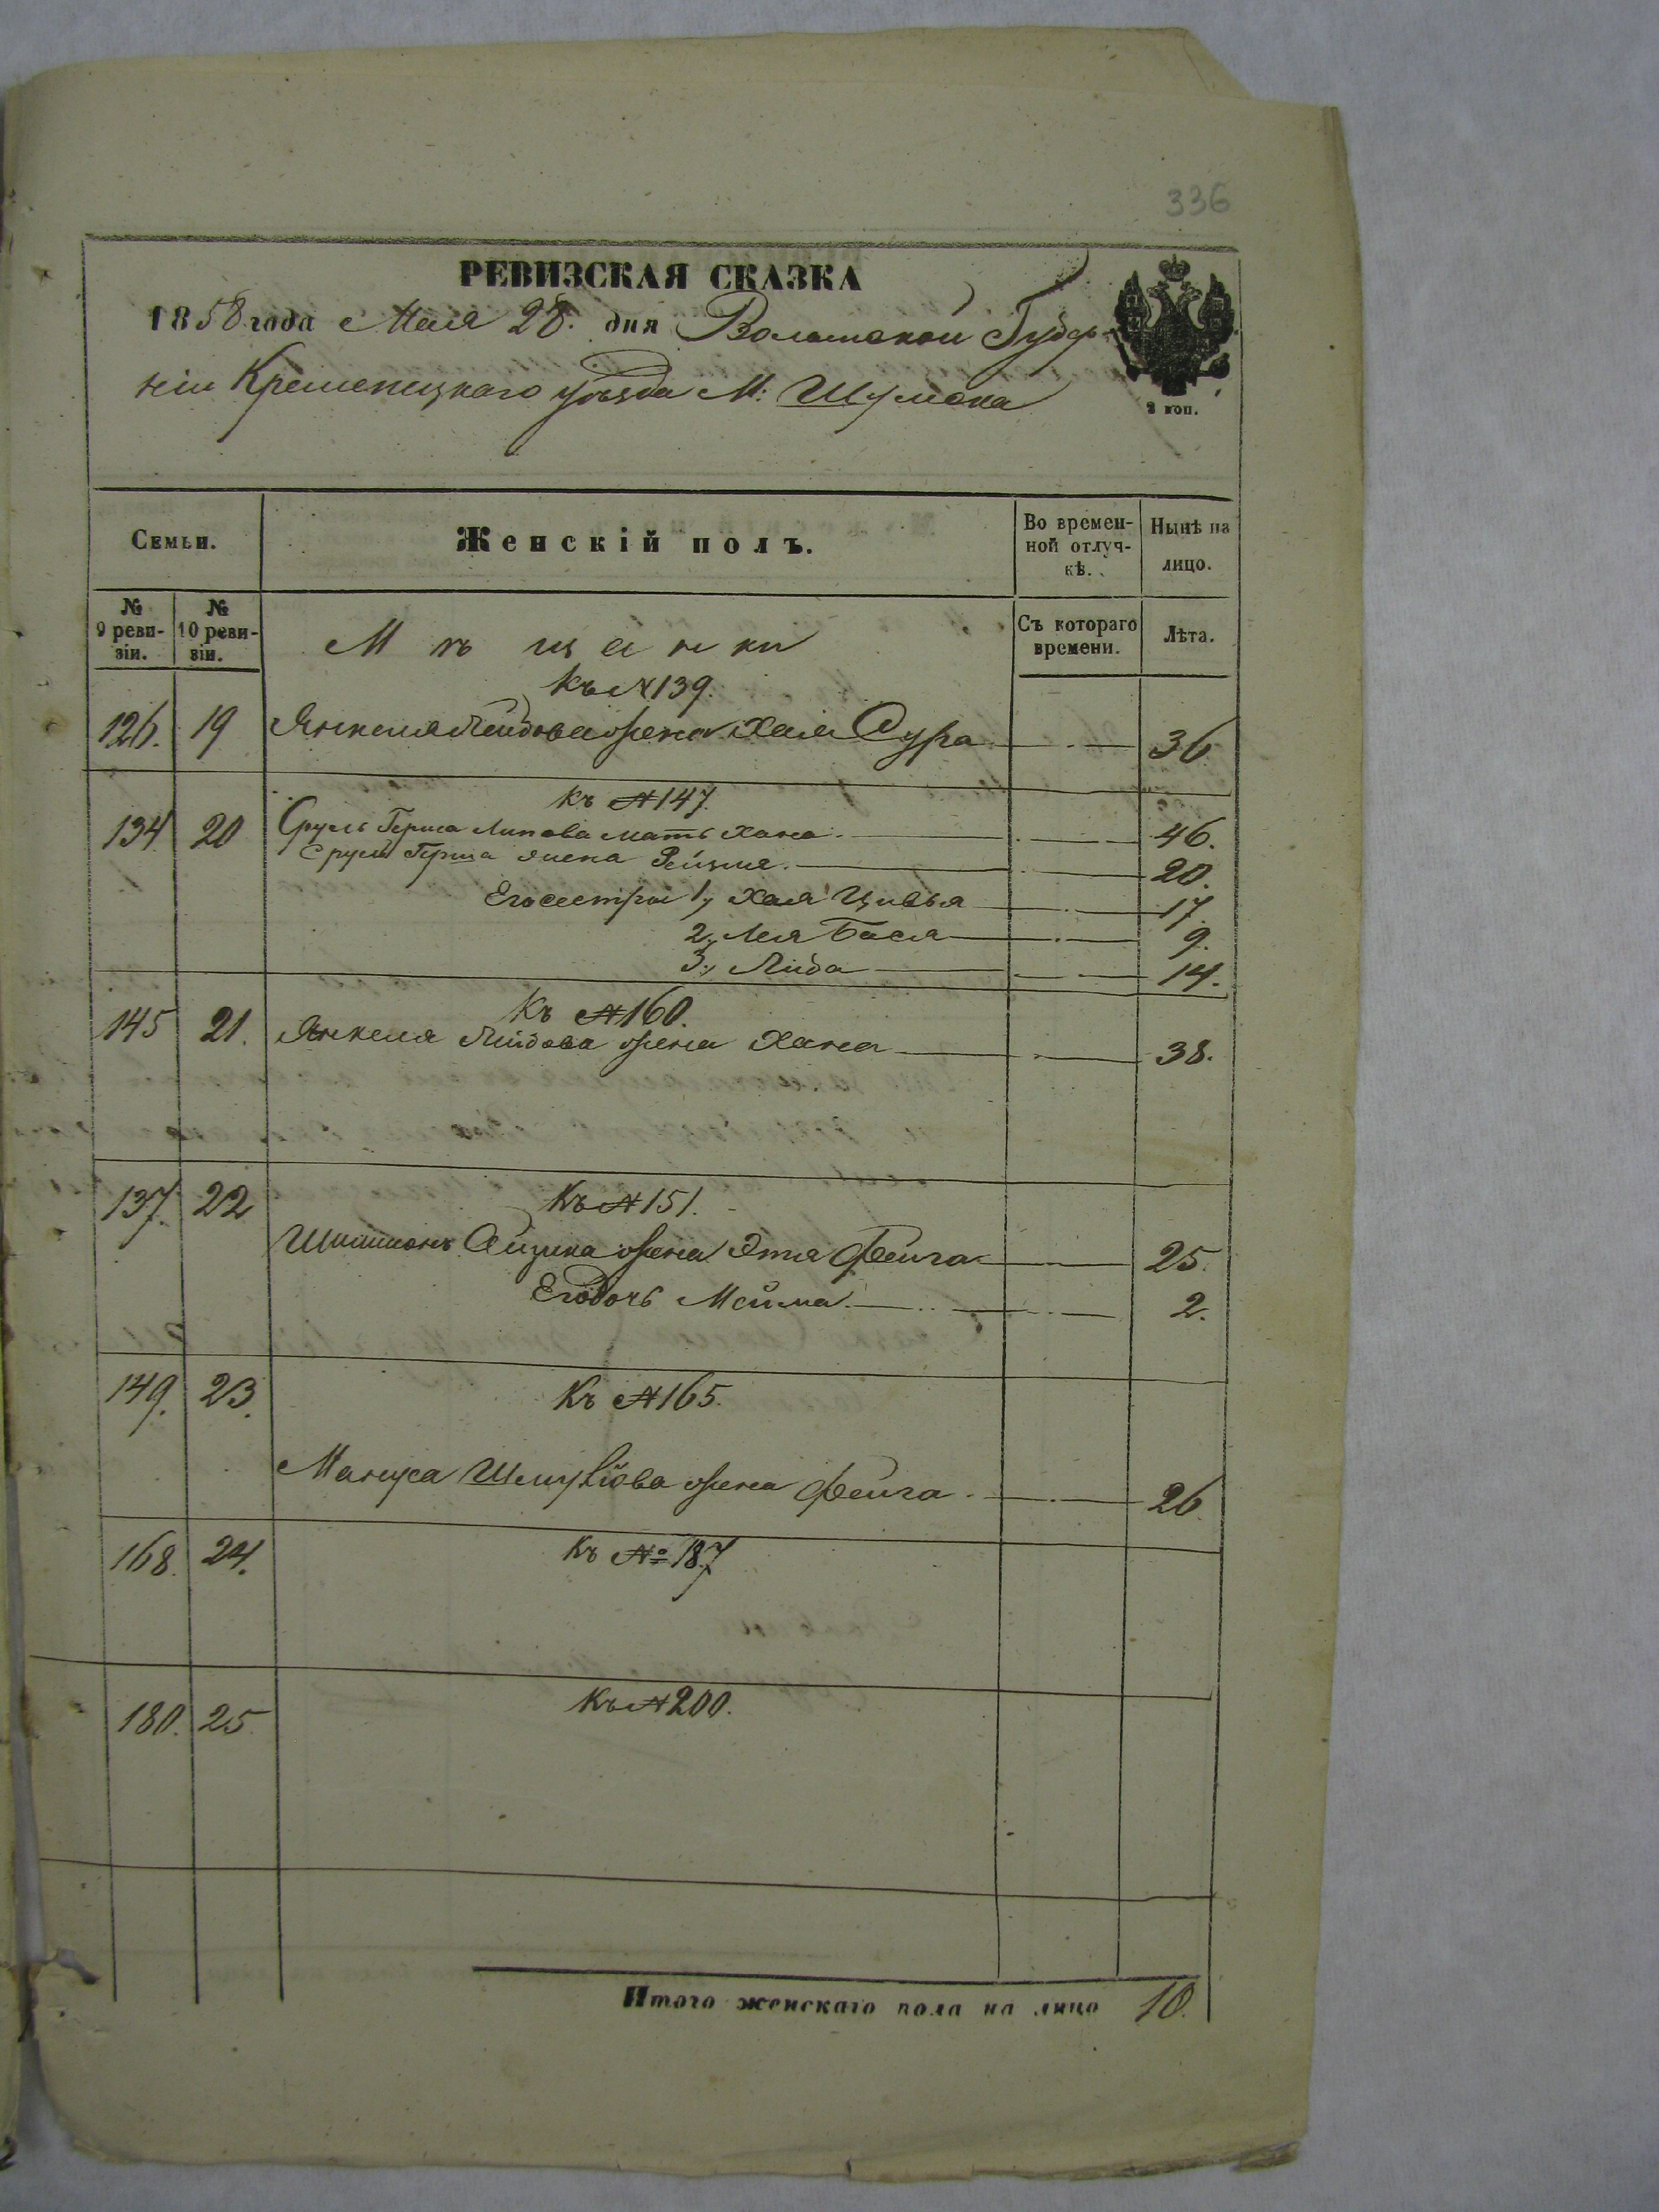 336
РЕВИЗСКАЯ СКАЗКА
1858 года Мая 28. дня Волынской Губер-
ніи Кременецкаго уѣзда М: Шумска
2 коп.
Семьи.
Женскій полъ.
Во времен-
ной отлуч-
кѣ.
Нынѣ на
лицо.
№
9 реви-
зіи.
№
10 реви-
зіи.
Съ котораго
времени.
Лѣта.
Мѣщанки
Къ № 139.
126. 19 Янкеля Лейбова жена Хая Сура 36
Къ № 147.
134 20 Сруль Герша Липова мать Хана 46.
Сруль Герша жена Рейзля 20.
Его сестры 1, Хая Цивья 17.
2, Лея Бася 9.
3, Либа 14.
Къ № 160.
145 21. Янкеля Лейбова жена Хана 38.
137. 22 Къ № 151.
Айзика жена Этя Фейга 25.
Его дочь 2.
149. 23. Къ № 165.
жена Фейга 26
168. 24. Къ № 187
180. 25. Къ № 200.
Итого женскаго пола на лицо 10.